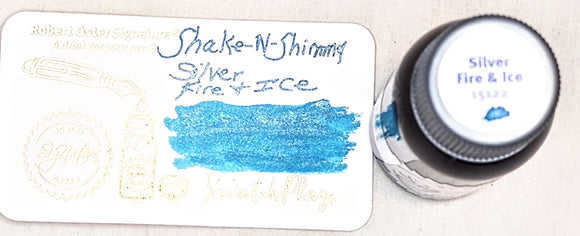 Robert Oster Signature
A drink for your pen
Shake-N-Shimmy
Silver
Fire + ICE
Signature
Silver
Fire & Ice
15122